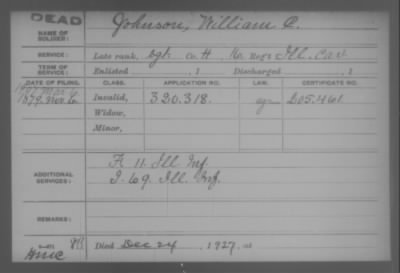 DEAD
NAME OF SOLDIER: Johnson, William C.
SERVICE: Late rank, Sgt Co. H, 16 Reg't Ill. Cav
TERM OF SERVICE: Enlisted , 1 Discharged , 1
DATE OF FILING. CLASS. APPLICATION NO. LAW. CERTIFICATE NO.
1879. Nov 6 Invalid, 320.318. 805.461
Widow,
Minor,
ADDITIONAL SERVICES: F. 11. Ill Inf
I. 69. Ill. Inf.
REMARKS:
Died Dec 24, 1927, at